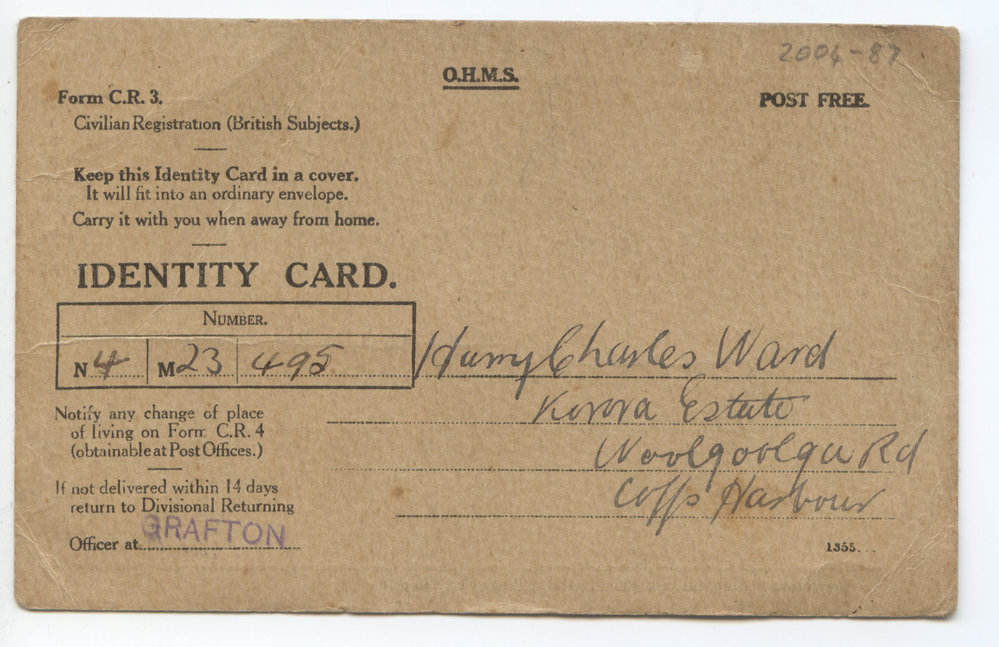 2004-87
O.H.M.S.
POST FREE.
Form C.R. 3.
Civilian Registration (British Subjects.)
Keep this Identity Card in a cover.
It will fit into an ordinary envelope.
Carry it with you when away from home.
IDENTITY CARD.
NUMBER.
N 4 M 23 495
Harry Charles Ward
Korora Estate
Woolgoolga Rd
Coffs Harbour
Notify any change of place
of living on Form C.R. 4
(obtainable at Post Offices.)
If not delivered within 14 days
return to Divisional Returning
Officer at GRAFTON
1355.